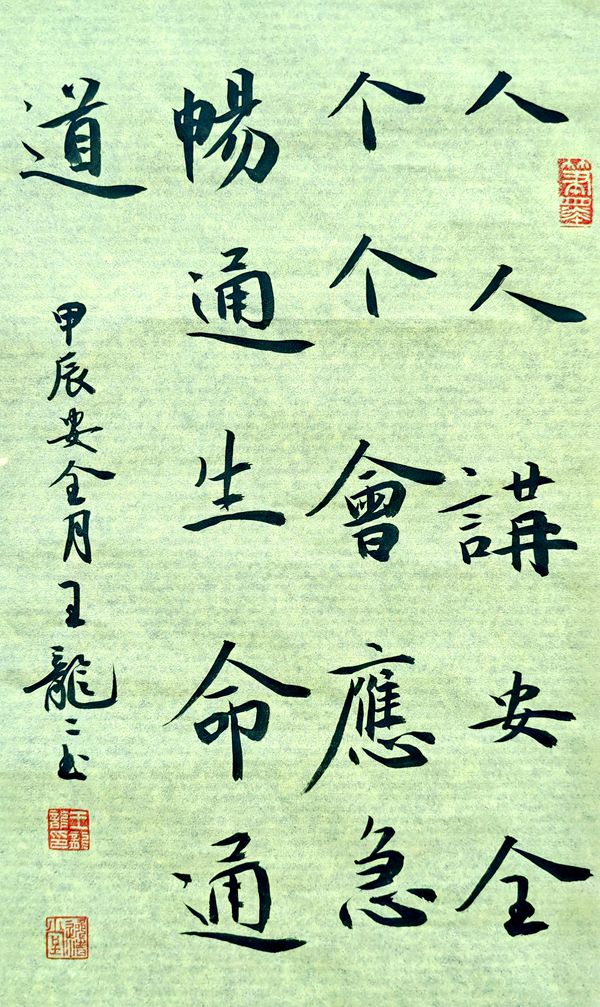 人人講安全
个个會應急
暢通生命通
道
甲辰安全月王龍二书